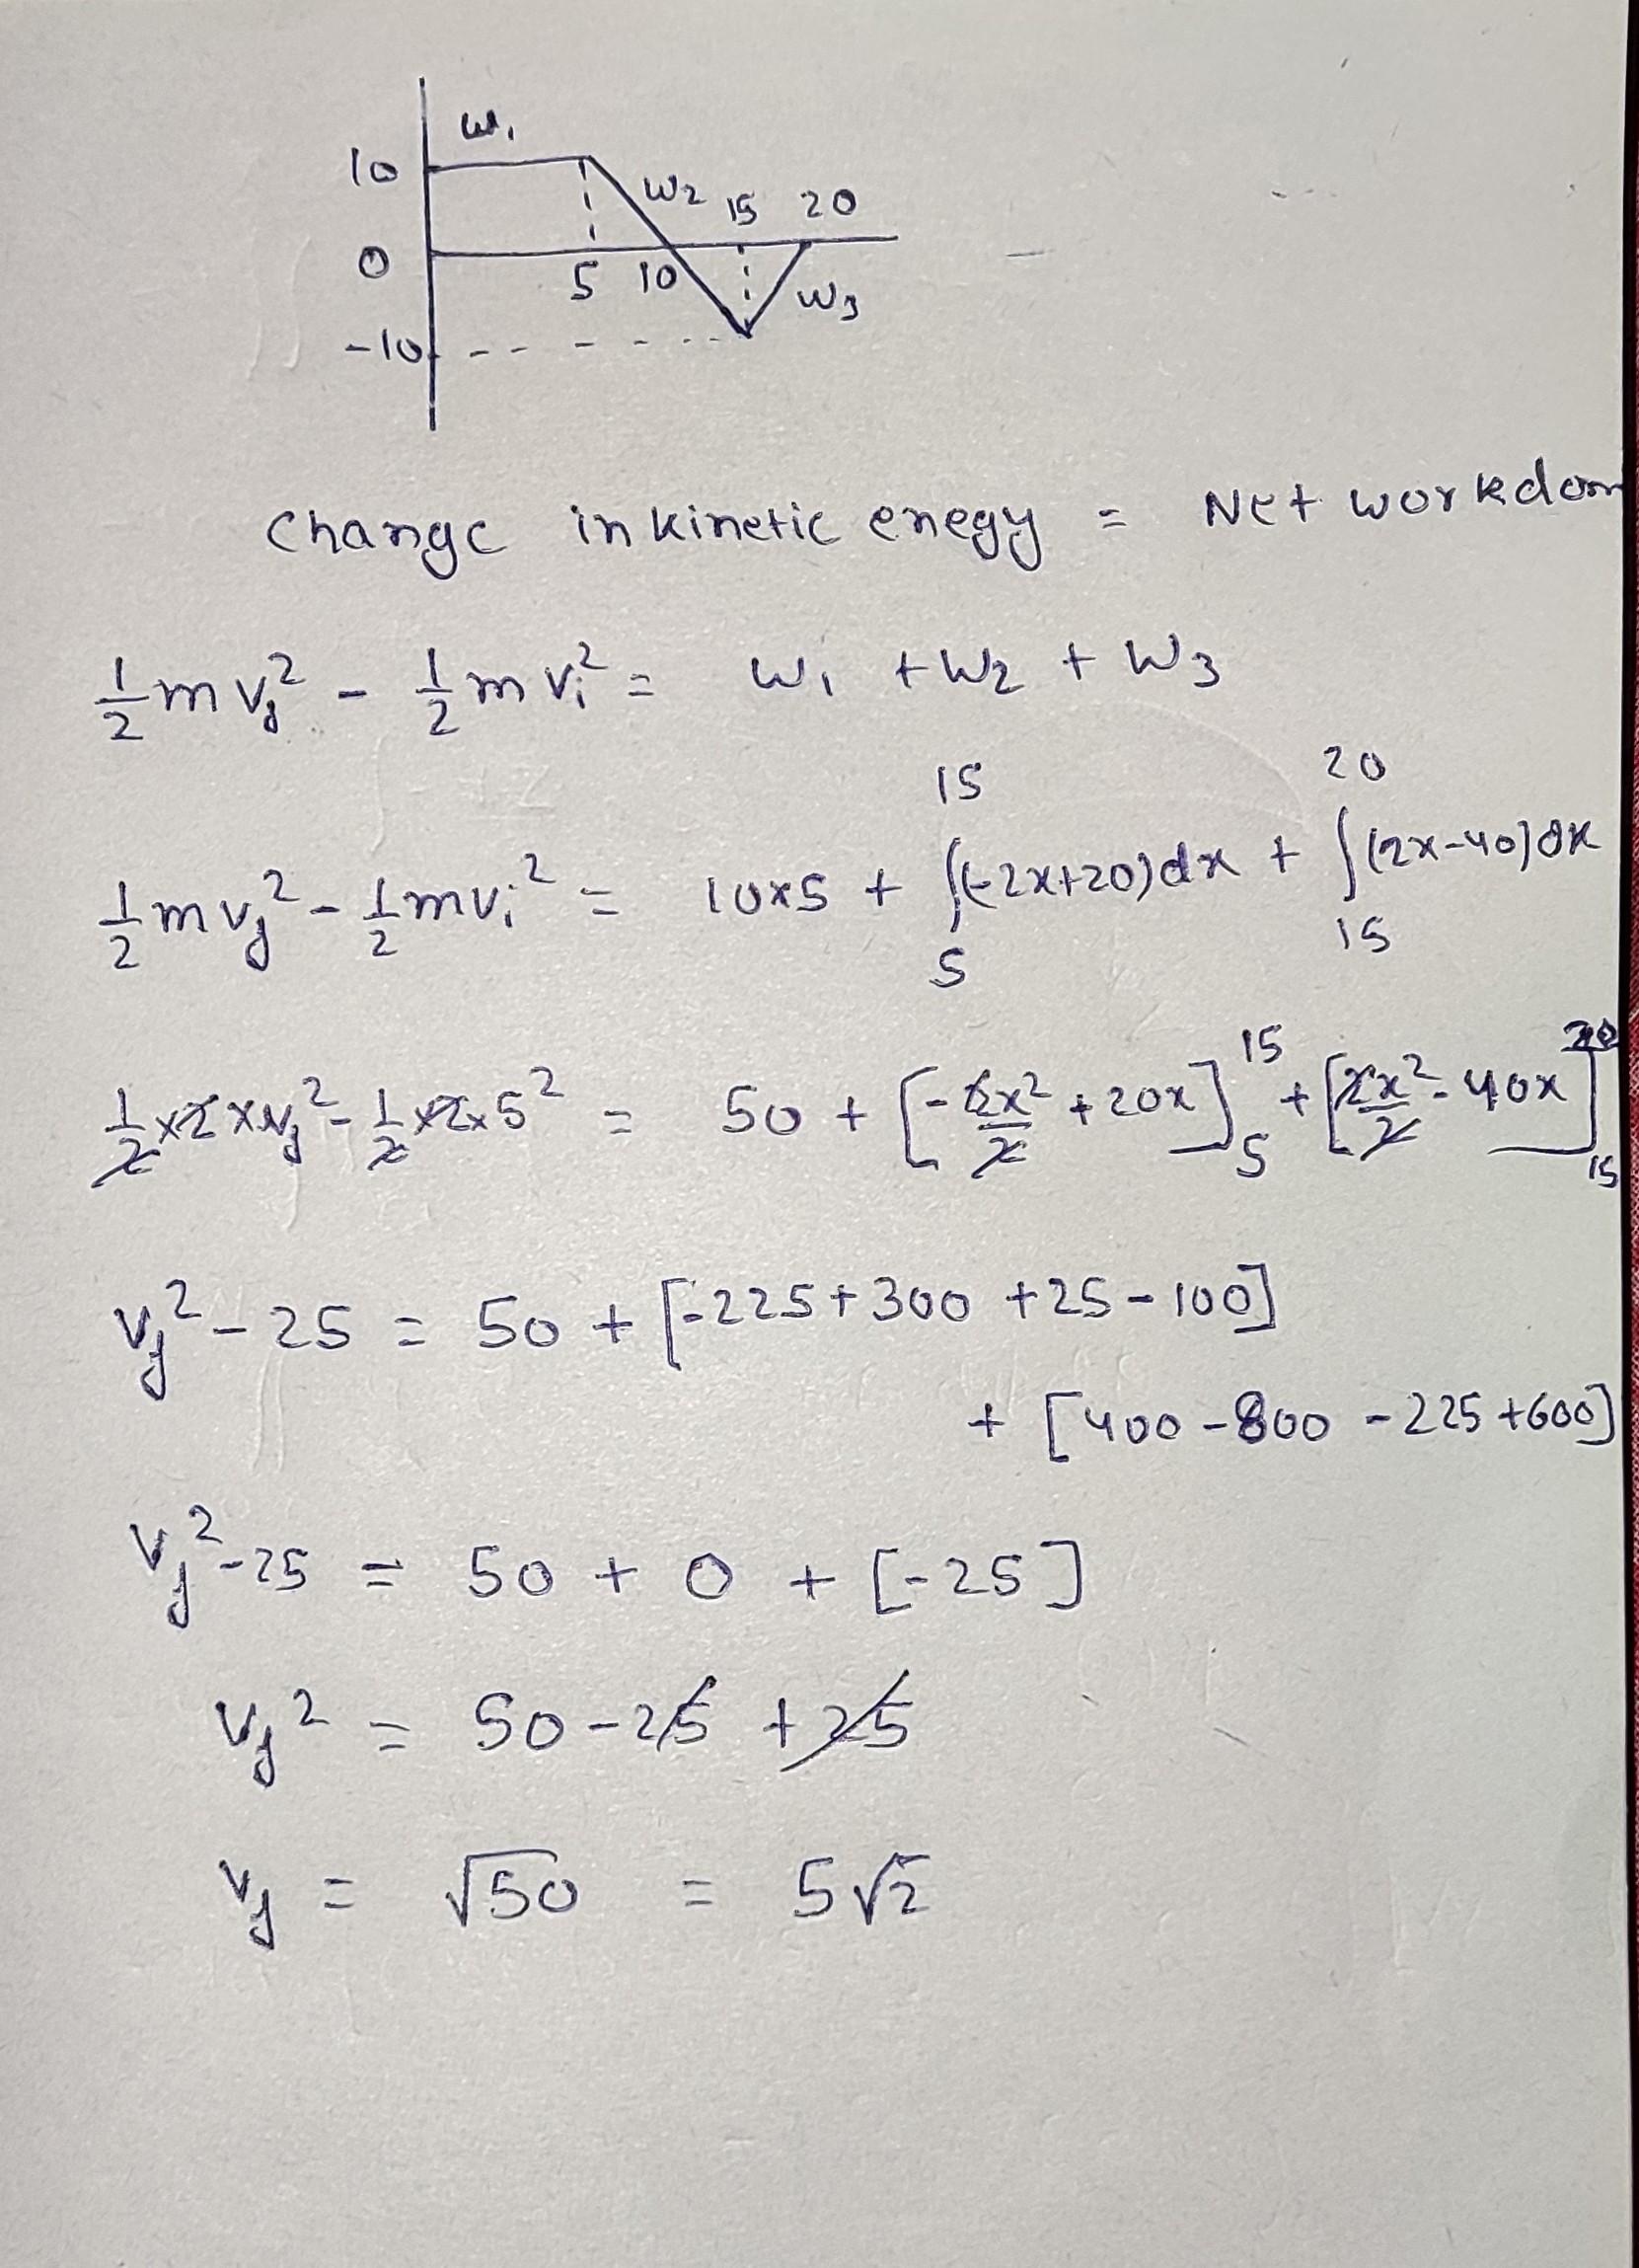 w₁
10
w₂ 15 20
0
5 10
w₃
-10
Change in kinetic enegy = Net workdon
½mv_f² - ½mv_i² = w₁ + w₂ + w₃
½mv_f² - ½mv_i² = 10x5 + ∫₅¹⁵(-2x+20)dx + ∫₁₅²⁰(2x-40)dx
½x2xv_f² - ½x2x5² = 50 + [-2x²/2 + 20x]₅¹⁵ + [2x²/2 - 40x]₁₅²⁰
v_f² - 25 = 50 + [-225 + 300 + 25 - 100]
+ [400 - 800 - 225 + 600]
v_f² - 25 = 50 + 0 + [-25]
v_f² = 50 - 25 + 25
v_f = √50 = 5√2